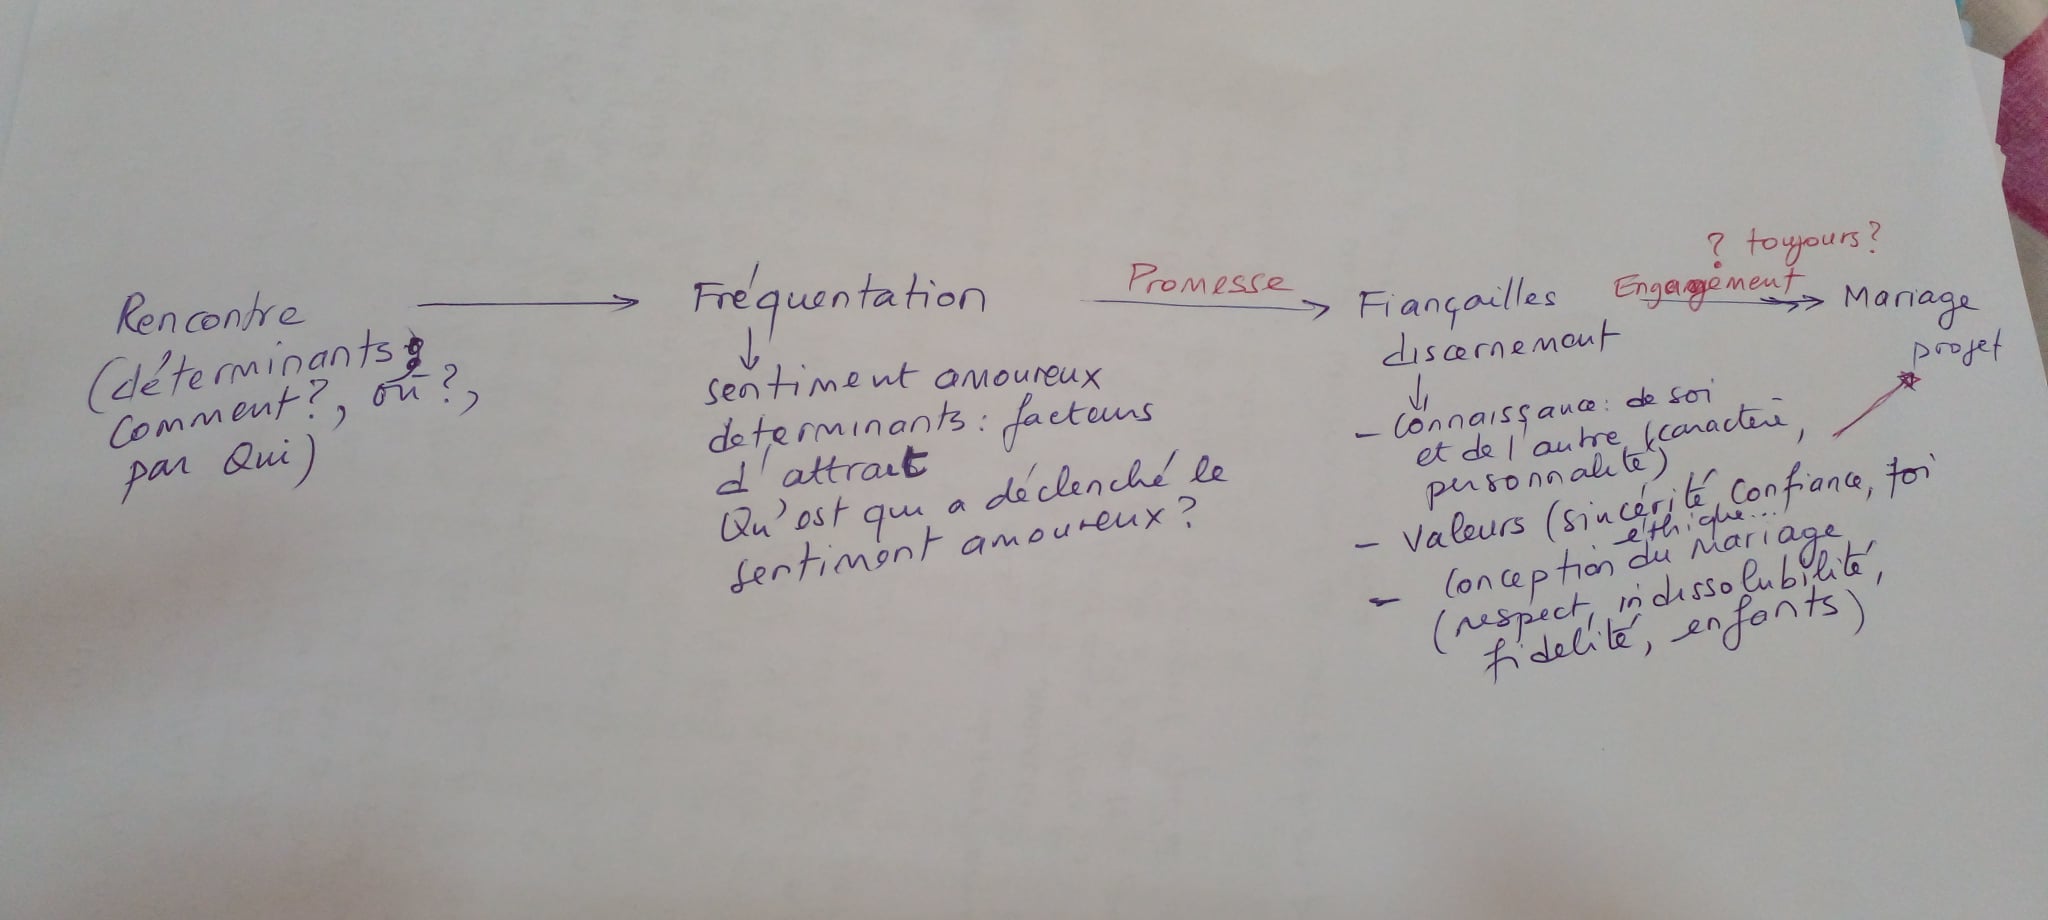 Rencontre
(déterminants :
Comment ?, où ?,
par Qui)
Fréquentation
sentiment amoureux
determinants : facteurs
d'attrait
Qu'est qui a déclenché le
sentiment amoureux ?
Promesse
Fiançailles
discernement
- Connaissance : de soi
et de l'autre (caractère,
personnalité)
- Valeurs (sincérité, confiance, foi
éthique...
- Conception du Mariage
(respect, indissolubilité,
fidélité, enfants)
? toujours ?
Engagement
Mariage
projet